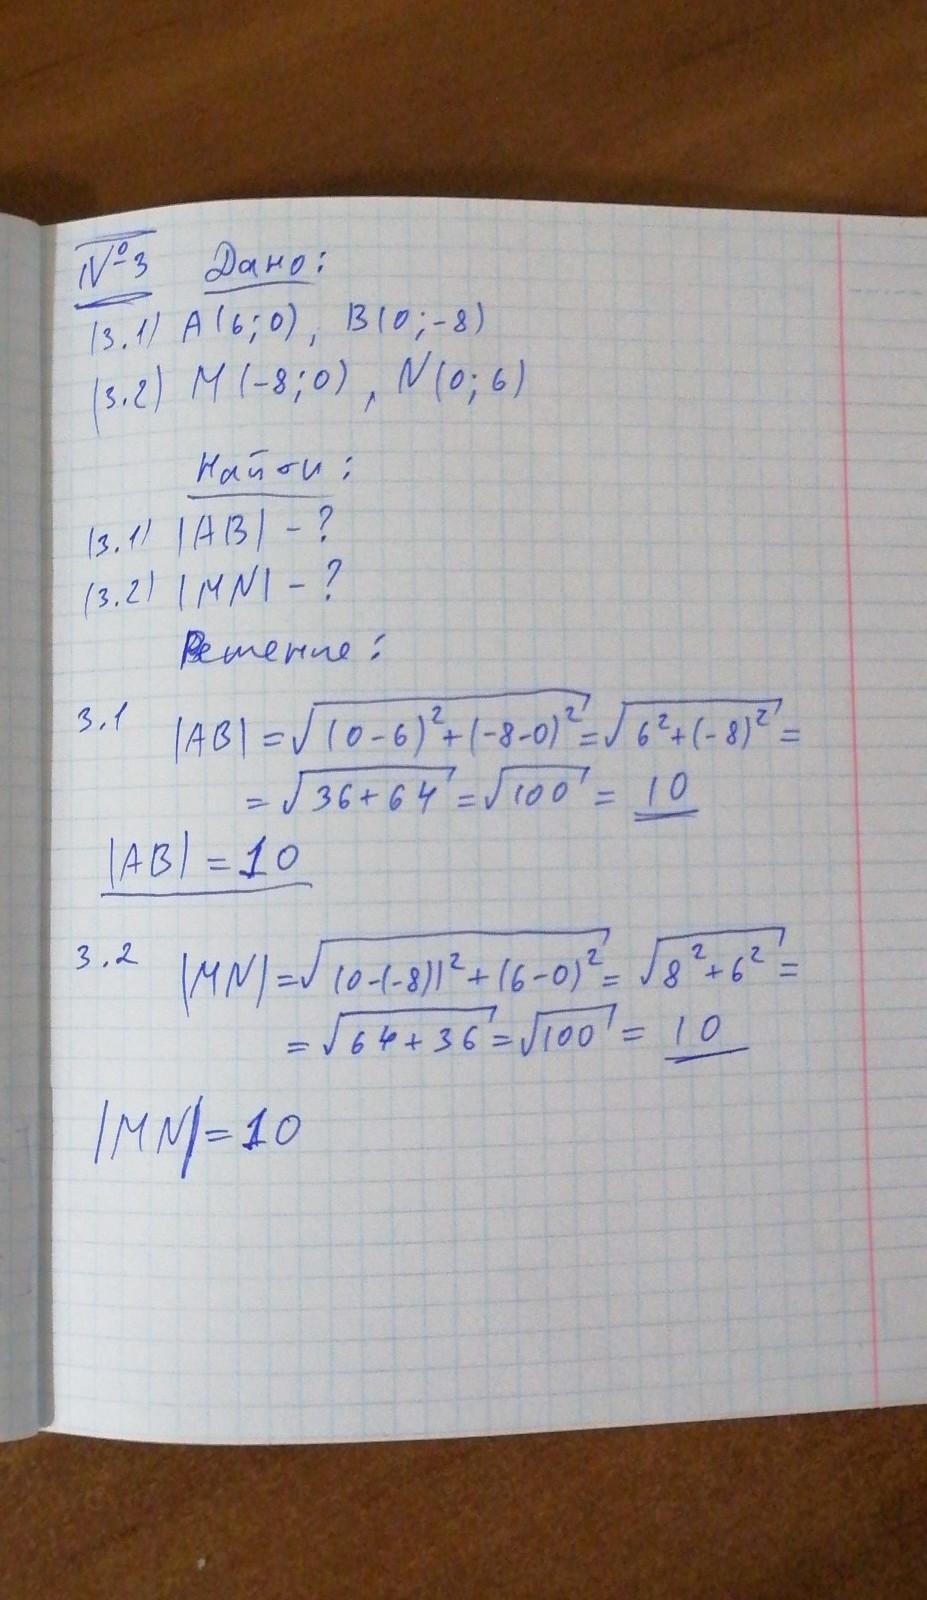 №3 Дано:
(3.1) A(6;0), B(0;-8)
(3.2) M(-8;0), N(0;6)
Найти:
(3.1) |AB| - ?
(3.2) |MN| - ?
Решение:
3.1 |AB| = √(0-6)² + (-8-0)² = √6² + (-8)² =
= √36+64 = √100 = 10
|AB| = 10
3.2 |MN| = √(0-(-8))² + (6-0)² = √8² + 6² =
= √64+36 = √100 = 10
|MN| = 10